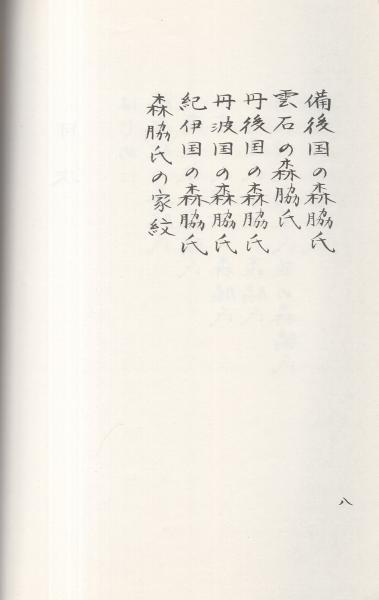 備後国の森脇氏
雲石の森脇氏
丹後国の森脇氏
丹波国の森脇氏
紀伊国の森脇氏
森脇氏の家紋
八